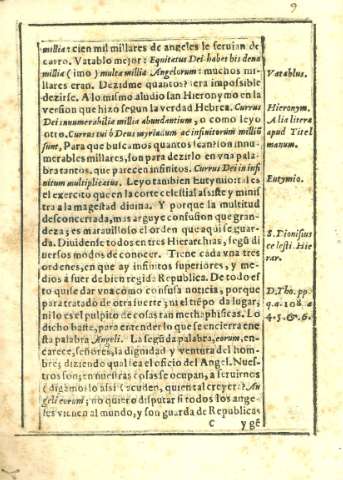 9
millia: cien mil millares de angeles le seruian de
carro. Vatablo mejor: Equitatus Dei habet bis dena
millia (imo) multa millia Angelorum: muchos mi-
llares eran. Dezidme quantos? sera impossible
dezirse. A lo mismo aludio san Hieronymo en la
version que hizo segun la verdad Hebrea. Currus
Dei innumerabilia millia abundantium, o como leyo
otro. Currus tui ò Deus myriadum ac infinitorum milliũ
sunt, Para que buscamos quantos sean? son innu-
merables millares, son para dezirlo en vna pala-
bra tantos, que parecen infinitos. Currus Dei in infi
nitum multiplicatus. Leyo tambien Eutymio: tal es
el exercito que en la corte celestial assiste y minis
tra a la magestad diuina. Y porque la multitud
desconcertada, mas arguye confusion que gran-
deza; es marauilloso el orden que aqui se guar-
da. Diuidense todos en tres Hierarchias, segũ di
uersos modos de conocer. Tiene cada vna tres
ordenes, en que ay infinitos superiores, y me-
dios a fuer de bien regida Republica. De todo es
to quise dar vna como confusa noticia, porque
para tratado de otra suerte; ni el tiẽpo da lugar;
ni lo es el pulpito de cosas tan methaphisicas. Lo
dicho baste, para entender lo que se encierra en e
sta palabra Angeli. La segũda palabra, eorum, en-
carece, señores, la dignidad y ventura del hom-
bre; diziendo qual sea el oficio del Angel. Nues-
tros son; en nuestras cosas se ocupan, a seruirnos
(digamoslo assi) acuden, quien tal creyera? An
geli eorum; no quiero disputar si todos los ange-
les vienen al mundo, y son guarda de Republicas
C y gẽ
Vatablus.
Hieronym.
A lia littera
apud Titel
manum.
Eutymio.
S. Dionisius
cælesti. Hie
rar.
D. Tho. pp.
q. a. 108. a
4. 5. & 6.